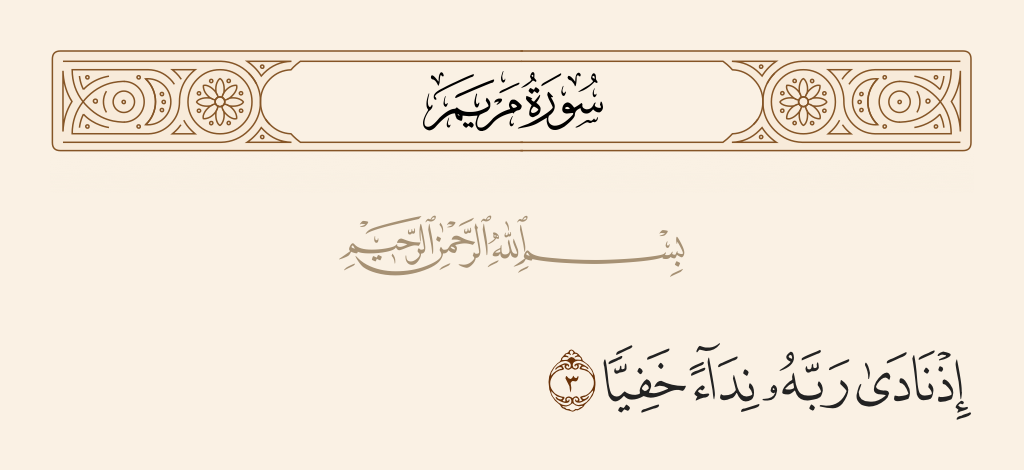 سُورَةُ مَرْيَمَ
بِسْمِ ٱللَّهِ ٱلرَّحْمَٰنِ ٱلرَّحِيمِ
إِذْ نَادَىٰ رَبَّهُۥ نِدَآءً خَفِيًّا ٣